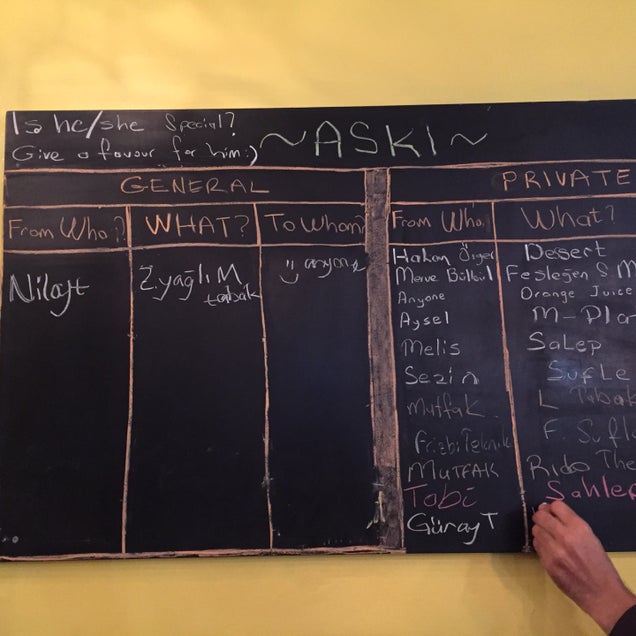 Is he/she Special?
Give a favour for him:)
~ASKI~
GENERAL
From Who? WHAT? To Whom?
Nilay Z.yağlı M tabak anyone
PRIVATE
From Who What?
Hakan Desert
Merve Fesleğen S M
Anyone Orange Juice
Aysel M-Pla
Melis SaLep
Sezin SUFLe
Mutfak L Tabak
Frizbi Teknik F. Sufl
MUTFAK The
Tobi Sahlep
Güray T